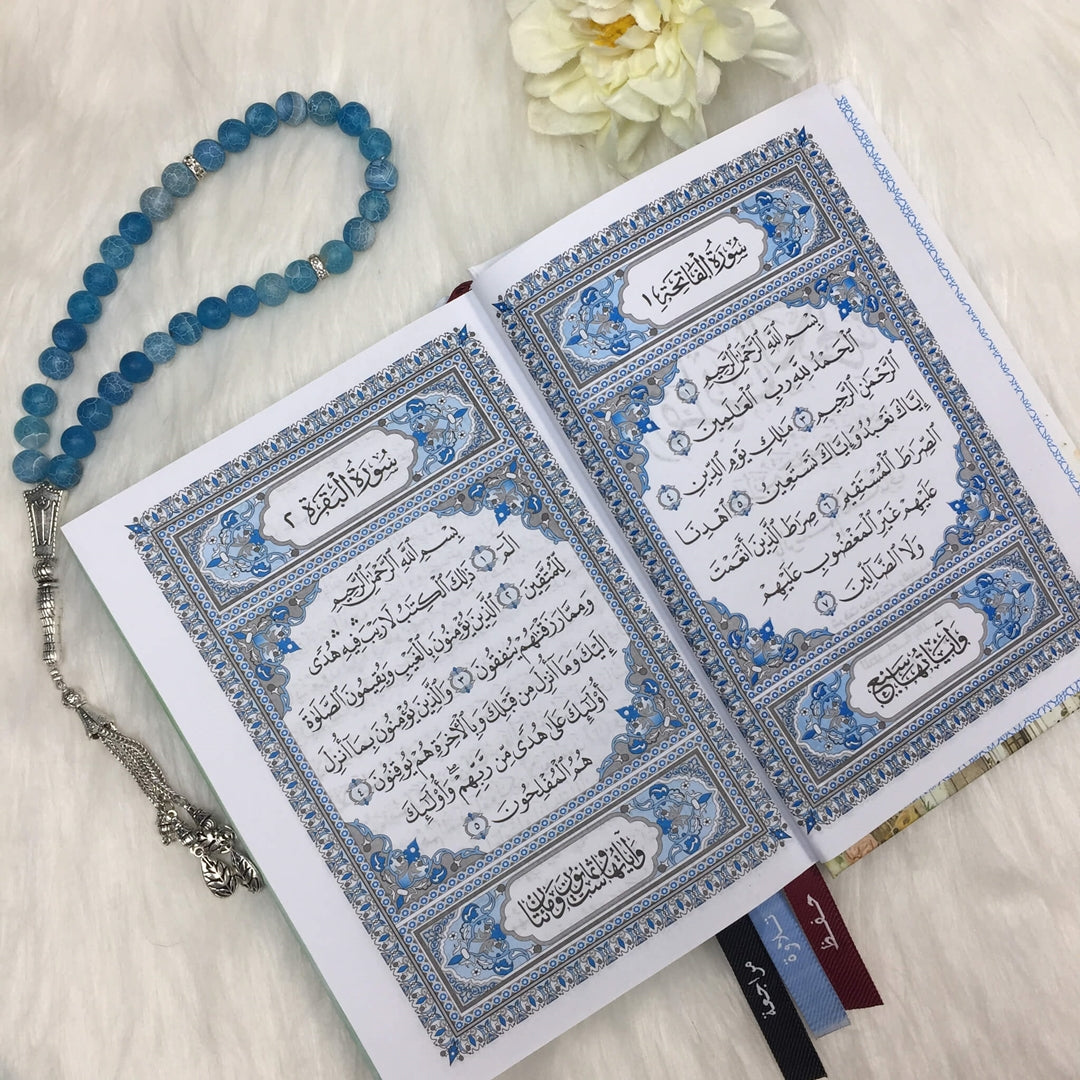 سُورَةُ الْفَاتِحَةِ ١
بِسْمِ ٱللَّهِ ٱلرَّحْمَٰنِ ٱلرَّحِيمِ ١
ٱلْحَمْدُ لِلَّهِ رَبِّ ٱلْعَٰلَمِينَ ٢
ٱلرَّحْمَٰنِ ٱلرَّحِيمِ ٣ مَٰلِكِ يَوْمِ ٱلدِّينِ ٤
إِيَّاكَ نَعْبُدُ وَإِيَّاكَ نَسْتَعِينُ ٥ ٱهْدِنَا
ٱلصِّرَٰطَ ٱلْمُسْتَقِيمَ ٦ صِرَٰطَ ٱلَّذِينَ أَنْعَمْتَ
عَلَيْهِمْ غَيْرِ ٱلْمَغْضُوبِ عَلَيْهِمْ
وَلَا ٱلضَّآلِّينَ ٧
وَآيَاتُهَا سَبْعٌ
سُورَةُ الْبَقَرَةِ ٢
بِسْمِ ٱللَّهِ ٱلرَّحْمَٰنِ ٱلرَّحِيمِ
الٓمٓ ١ ذَٰلِكَ ٱلْكِتَٰبُ لَا رَيْبَ فِيهِ هُدًى
لِّلْمُتَّقِينَ ٢ ٱلَّذِينَ يُؤْمِنُونَ بِٱلْغَيْبِ وَيُقِيمُونَ ٱلصَّلَوٰةَ
وَمِمَّا رَزَقْنَٰهُمْ يُنفِقُونَ ٣ وَٱلَّذِينَ يُؤْمِنُونَ بِمَآ أُنزِلَ
إِلَيْكَ وَمَآ أُنزِلَ مِن قَبْلِكَ وَبِٱلْأَخِرَةِ هُمْ يُوقِنُونَ ٤
أُو۟لَٰٓئِكَ عَلَىٰ هُدًى مِّن رَّبِّهِمْ وَأُو۟لَٰٓئِكَ
هُمُ ٱلْمُفْلِحُونَ ٥
وَآيَاتُهَا سِتٌّ وَثَمَانُونَ وَمِائَتَانِ
حفظ
تلاوة
مراجعة